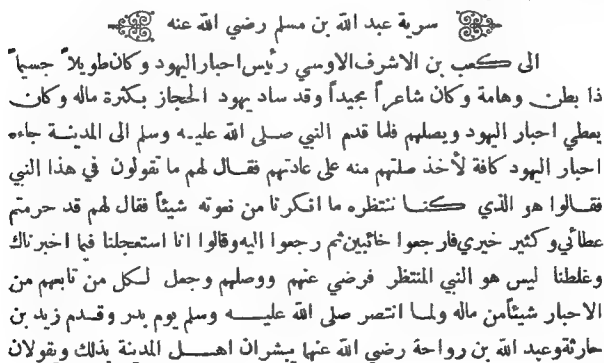 سرية عبد الله بن مسلم رضي الله عنه
الى كعب بن الاشرف الاوسي رئيس احبار اليهود وكان طويلاً جسيماً
ذا بطن وهامة وكان شاعراً مجيداً وقد ساد يهود الحجاز بكثرة ماله وكان
يعطي احبار اليهود ويصلهم فلما قدم النبي صلى الله عليه وسلم الى المدينة جاءه
احبار اليهود كافة لأخذ صلتهم منه على عادتهم فقال لهم ما تقولون في هذا النبي
فقالوا هو الذي كنا ننتظره ما انكرنا من نعوته شيئاً فقال لهم قد حرمتم
عطائي وكثير خيري فارجعوا خائبين ثم رجعوا اليه وقالوا انا استعجلنا فيا اخبرناك
وغلطنا ليس هو النبي المنتظر فرضي عنهم ووصلهم وجعل لكل من تابعهم من
الاحبار شيئاً من ماله ولما انتصر صلى الله عليه وسلم يوم بدر وقدم زيد بن
حارثة وعبد الله بن رواحة رضي الله عنهما يبشران اهل المدينة بذلك ويقولان